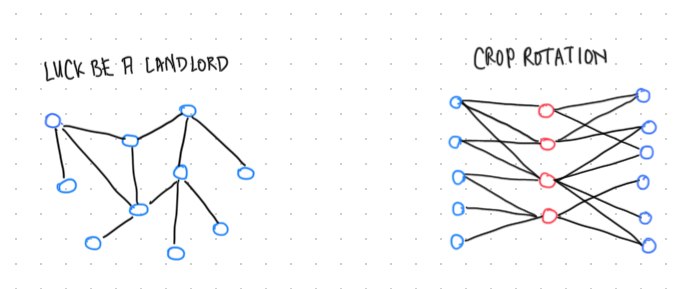 LUCK BE A LANDLORD
CROP ROTATION